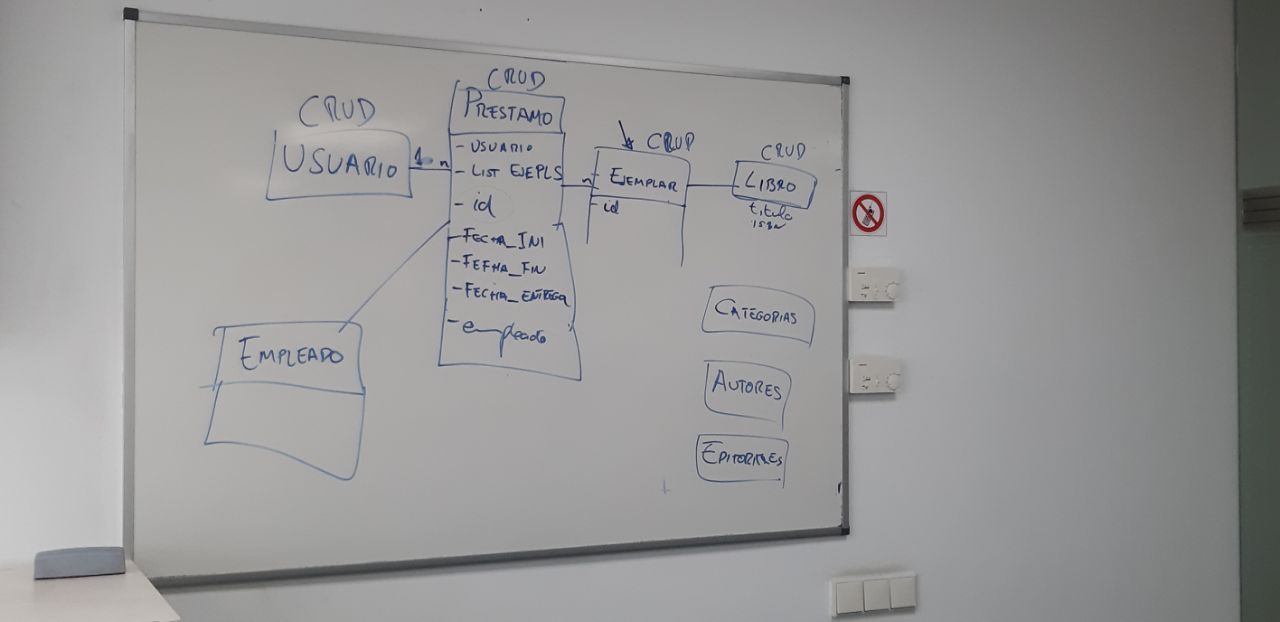 CRUD
USUARIO
1 n
CRUD
PRESTAMO
- USUARIO
- LIST EJEPLS
- id
- FECHA_INI
- FEFHA_FIN
- FECHA_ENTREGA
- empleado
EMPLEADO
CRUD
n
EJEMPLAR
- id
CRUD
LIBRO
titulo
ISBN
CATEGORIAS
AUTORES
EDITORIALES